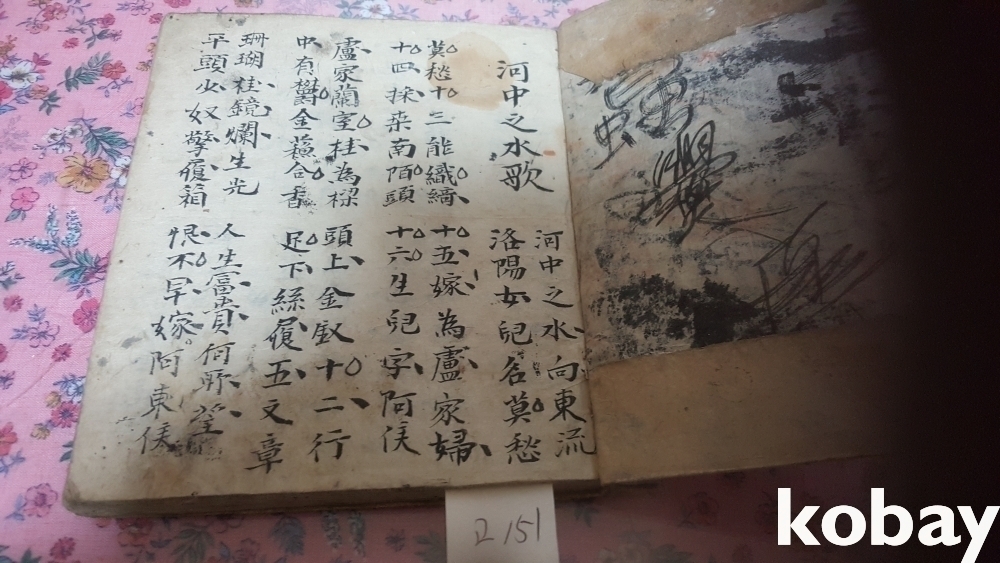 河中之水歌
河中之水向東流
洛陽女兒名莫愁
莫愁十三能織縞
十四採桑南陌頭
十五嫁為盧家婦
十六生兒字阿侯
盧家蘭室桂為樑
中有鬱金蘓合香
頭上金釵十二行
足下絲履五文章
珊瑚桂鏡爛生光
平頭少奴擎履箱
人生富貴何所望
恨不早嫁阿東侯
2151
kobay